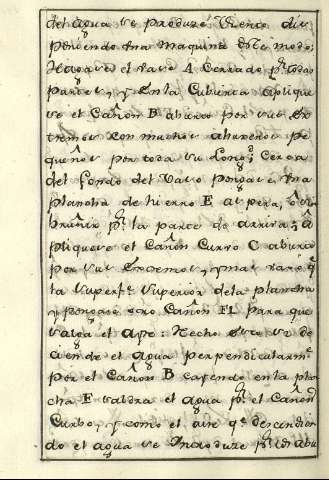 del agua se produze Viento dis
poniendo Una Maquina deste modo,
Hagase el Vaso A Cerrado pr. todas
partes, y en la Cubierta aplique
se el Cañon B abierto por sus Ex
tremos con muchos ahujeros pe
queños por toda su Longd. Cerca
del fondo del Vaso pongase Una
plancha de hierro E aspera, ô sin
bruñir pr. la parte de arriva; â
pliquese el Cañon Curvo C abierto
por sus Extremos, y mas vaxo qe.
la Superfe. Superior dela plancha
y pongase otro Cañon FL para que
salga el Ayre: Hecho esto si de
ciende el Agua perpendicularme.
por el Cañon B cayendo en la plan
cha E saldra el agua pr. el Cañon
Curbo, y como el aire qe. descendien
do el agua se Introduze pr. los ahu